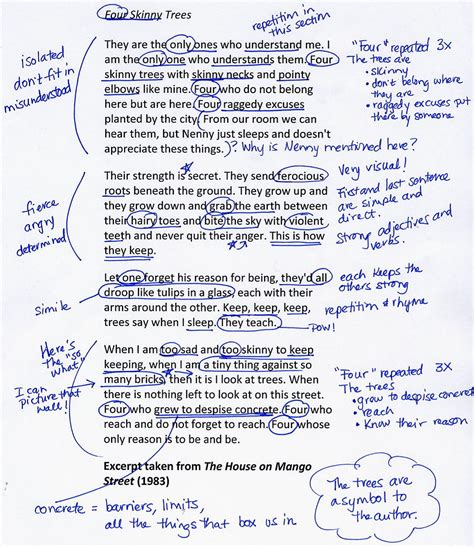 Four Skinny Trees
repetition in
this section
They are the only ones who understand me. I
am the only one who understands them. Four
skinny trees with skinny necks and pointy
elbows like mine. Four who do not belong
here but are here. Four raggedy excuses
planted by the city. From our room we can
hear them, but Nenny just sleeps and doesn't
appreciate these things.
)? Why is Nenny mentioned here?
isolated
don't fit in
misunderstood
"Four" repeated 3x
The trees are
• skinny
• don't belong where
they are
• raggedy excuses put
there by someone
Their strength is secret. They send ferocious
roots beneath the ground. They grow up and
they grow down and grab the earth between
their hairy toes and bite the sky with violent
teeth and never quit their anger. This is how
they keep.
fierce
angry
determined
Very visual!
First and last sentence
are simple and
direct.
Strong adjectives and
verbs.
Let one forget his reason for being, they'd all
droop like tulips in a glass, each with their
arms around the other. Keep, keep, keep,
trees say when I sleep. They teach.
simile
each keeps the
others strong
repetition & rhyme
POW!
When I am too sad and too skinny to keep
keeping, when I am a tiny thing against so
many bricks, then it is I look at trees. When
there is nothing left to look at on this street.
Four who grew to despise concrete. Four who
reach and do not forget to reach. Four whose
only reason is to be and be.
Here's
the "so
what"
I can
picture that
wall!
"Four" repeated 3X
The trees
• grow to despise concrete
• reach
• Know their reason
Excerpt taken from The House on Mango
Street (1983)
concrete = barriers, limits,
all the things that box us in
The trees are
a symbol to
the author.